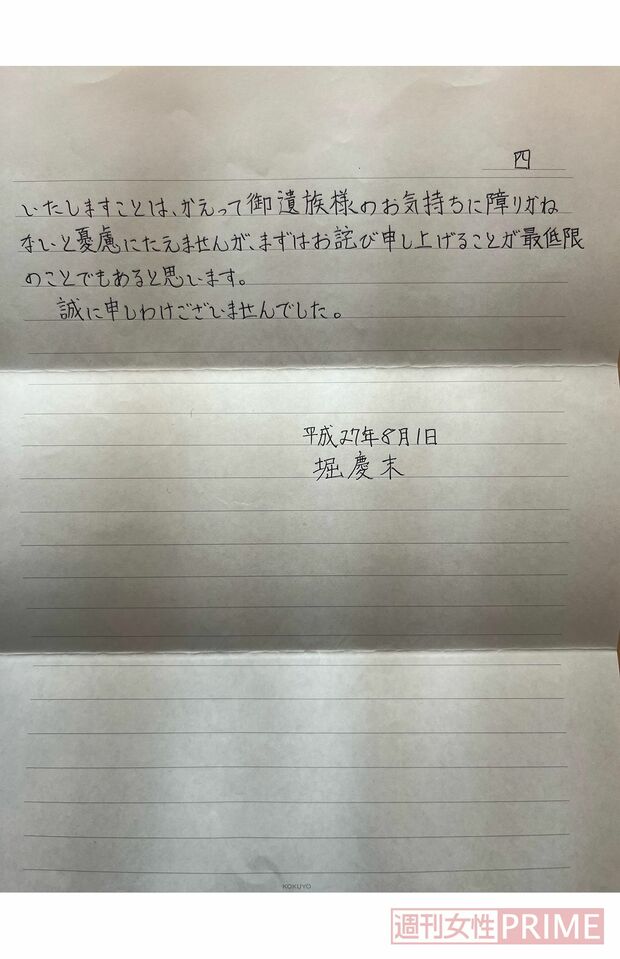 四
いたしますことは、かえって御遺族様のお気持ちに障りかね
ないと憂慮にたえませんが、まずはお詫び申し上げることが最低限
のことでもあると思います。
誠に申しわけございませんでした。
平成27年8月1日
堀慶末
KOKUYO
週刊女性PRIME